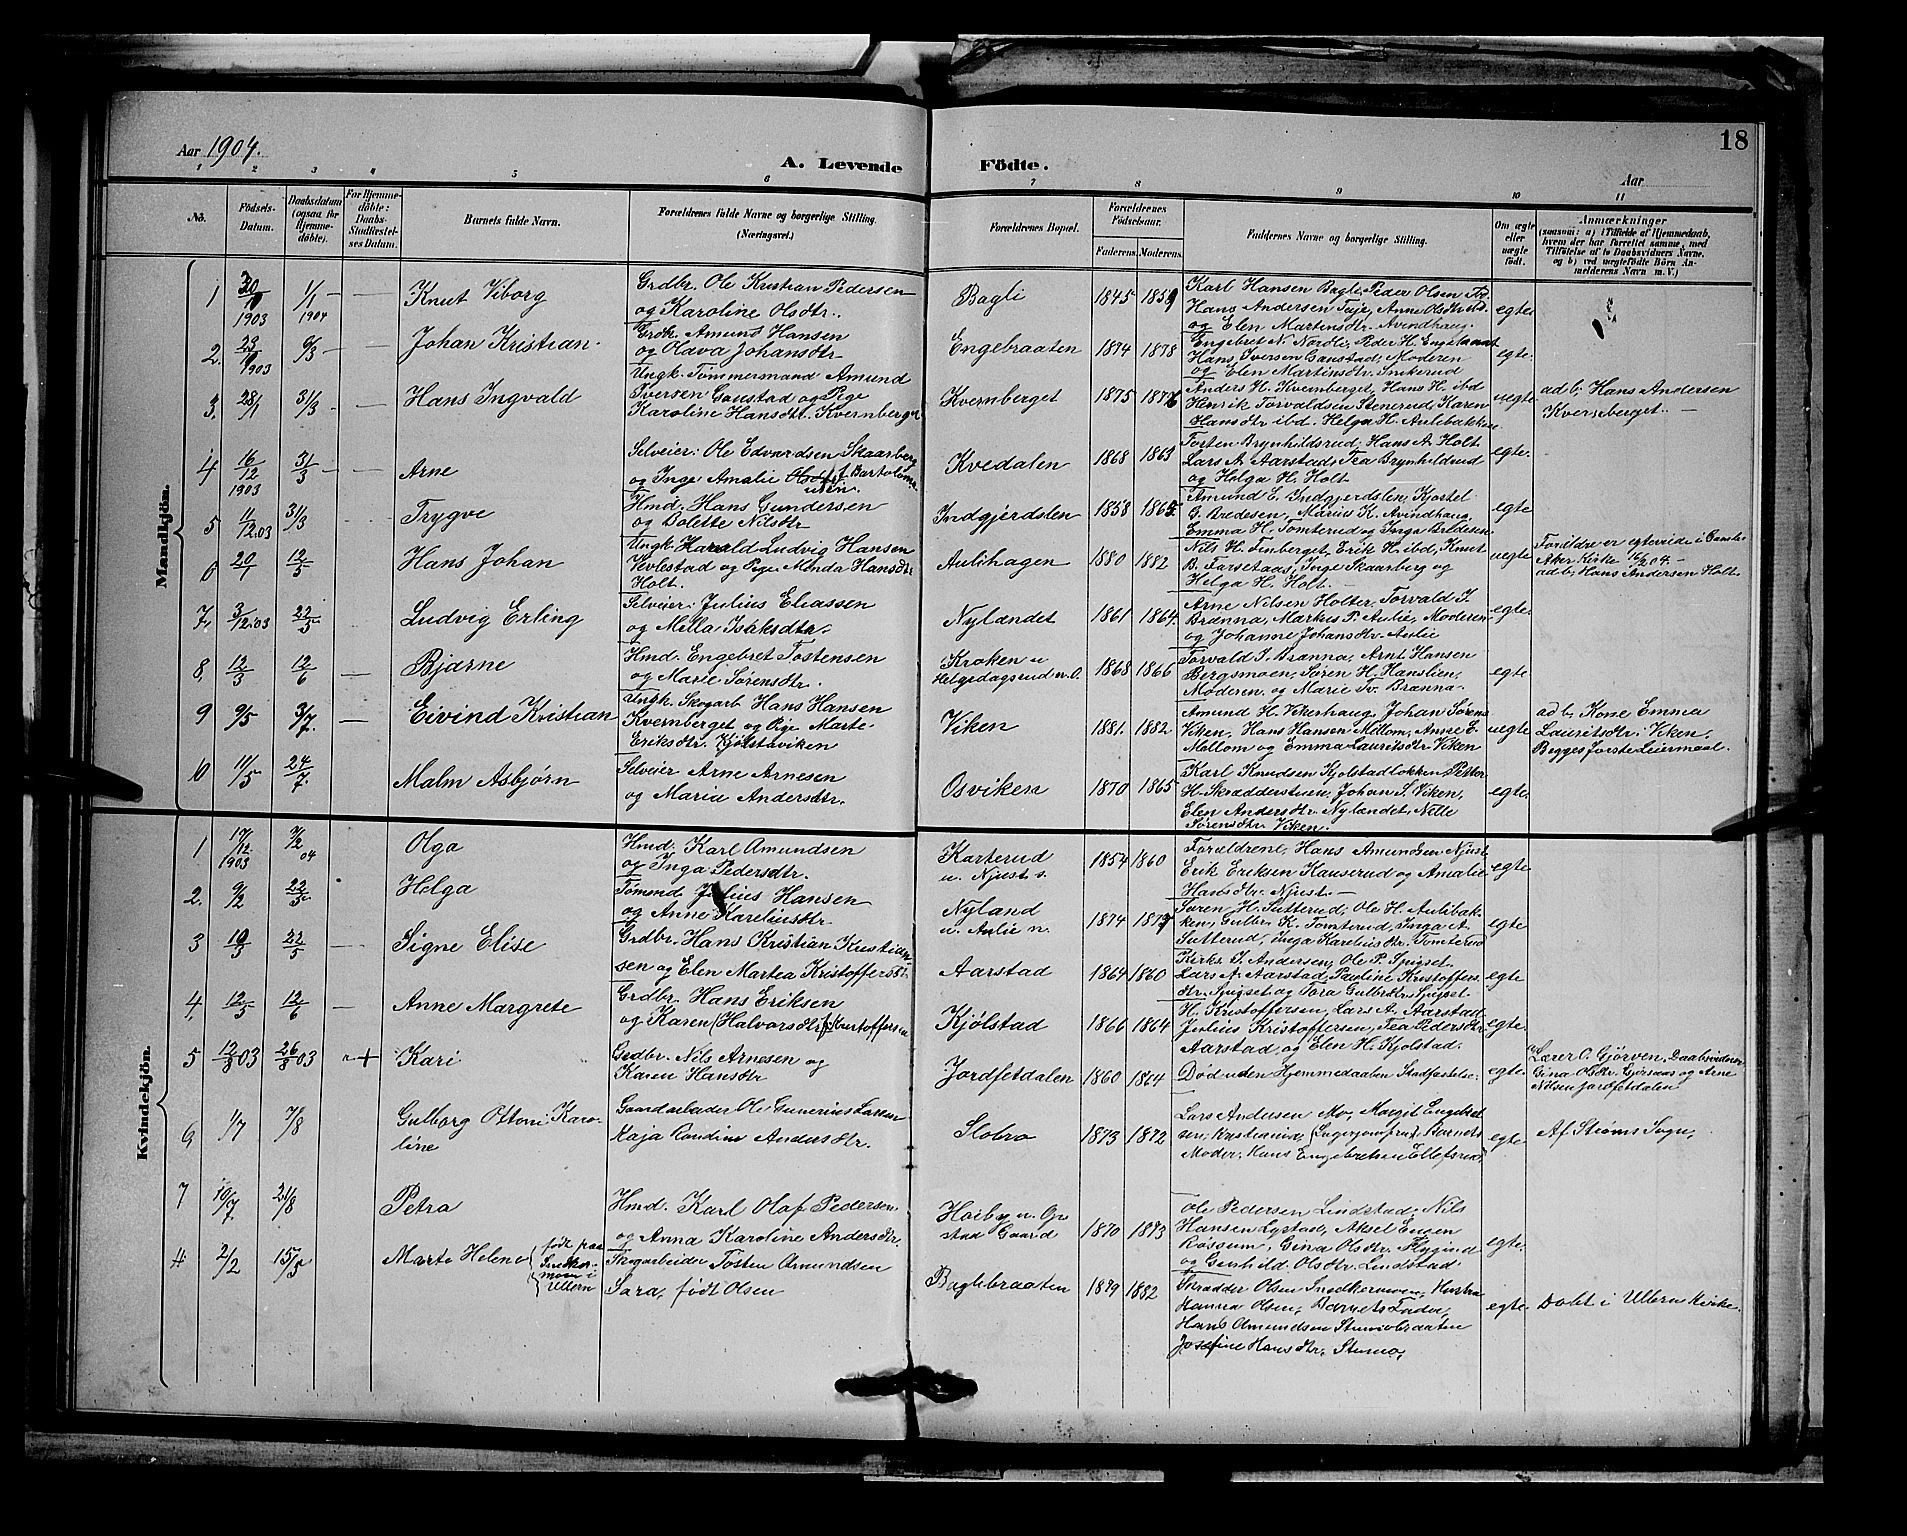 Aar 1904.
A. Levende Födte.
18
Aar
1 2 3 4 5 6 7 8 9 10 11
No. Födsels-Datum. Daabsdatum (ogsaa for Hjemmedöbte). For Hjemmedöbte: Daabs-Stadfæstelses Datum. Barnets fulde Navn. Forældrenes fulde Navne og borgerlige Stilling. (Næringsvei.) Forældrenes Bopæl. Forældrenes Födselsaar. Faderens. Moderens. Faddernes Navne og borgerlige Stilling. Om ægte eller uægte födt. Anmærkninger (saasom: a) i Tilfælde af Hjemmedaab, hvem der har forrettet samme, med Tilföielse af to Daabsvidners Navne, og b) ved uægtefödte Börn Anmelderens Navn m. V.)
Mandkjön.
1 1903 1/1 1904 — Knut Viborg
Grdbr. Ole Kristian Pedersen
og Karoline Olsdtr.
Bagli 1845 1859
Karl Hansen Bagli, Peder Olsen
Hans Andersen Teje, Anne Olsdtr
og Elen Martinsdtr. Avindhaug.
egte
2. 1903 6/3 — Johan Kristian
Grdbr. Amund Hansen
og Olava Johansdtr
Engebraaten 1874 1878
Engebret N. Nordli, Peder H. Engebraat
Hans Iversen Gaustad, Moderen
og Elen Martinsdtr. Snikerud
egte.
3. 28/1 31/3 Hans Ingvald
Ungk. Tømmermand Amund
Iversen Gaustad og Pige
Karoline Hansdtr. Kvernberget
Kvernberget 1875 1876
Anders H. Kvernberget, Hans H. ibd
Henrik Torvaldsen Stenerud, Karen
Hansdtr ibd. Helga H. Aulibakken
uegte
adb. Hans Andersen
Kvernberget. —
4 16/12 1903 31/3 — Arne
Selveier: Ole Edvardsen Skaarberg
og Inge Amalie f. Bartoloma
usen.
Kvedalen 1868 1863
Torsten Brynhildsrud, Hans A. Holt
Lars A. Aarstad, Tea Brynhildsrud
og Helga H. Holt
egte.
5 11/12.03 31/3 Trygve
Hmd. Hans Gundersen
og Bolette Nilsdtr
Indgjerdslen 1858 1865.
Amund E. Indgjerdslen, Kjostel
G. Bredesen, Marius K. Avindhaug,
Emma H. Tomterud og Inga Bredesen
egte
6 20/1 12/5 Hans Johan
Ungk. Harald Ludvig Hansen
Vevlestad og Pige Monda Hansdtr
Holt.
Aulihagen 1880 1882
Nils H. Finberget, Erik H. ibd, Knut
B. Farsetaas, Inge Skaarberg og
Helga H. Holt. —
uegte
Forældre er egteviede i
Aker Kirke 16/2 04. —
adb. Hans Andersen Holt.
7. 3/12.03 22/5 Ludvig Erling
Selveier: Julius Eliassen
og Mella Isaksdtr.
Nylændet 1861 1864.
Arne Nilsen Holter, Torvald I.
Brænna, Markus P. Aulie, Moderen
og Johanne Johansdtr Aulie
egte.
8. 12/3 12/6 — Bjarne
Hmd. Engebret Tostensen
og Marie Sørensdtr.
Kroken u
Helgedagsrud n. O. 1868 1866
Torvald I. Brænna, Arnt Hansen
Bergsmoen, Søren H. Hanslien,
Moderen og Marie Tv. Brænna.
egte
9 9/5 3/7. — Eivind Kristian
Ungk. Skogarb Hans Hansen
Kvernberget og Pige Marte
Eriksdtr. Kjølstaviken
Viken 1881. 1882
Amund H. Vikerhaug, Johan Sørens
Viken, Hans Hansen Mellom, Anne E.
Mellom og Emma Lauritsdtr Viken
uegte
adb. Kone Emma
Lauritsdtr. Viken.
Begges første Leiermaal.
10 11/5 24/7. Malm Asbjørn
Selveier Arne Arnesen
og Maria Andersdtr.
Osviken 1870 1865
Karl Knudsen Kjolstadlokken, Petter
H. Skrædderstuen, Johan S. Viken,
Elen Andersdtr. Nylændet, Nelle
Sørensdtr. Viken.
egte.
Kvindekjön.
1 17/12 1903 7/2 04 Olga
Hmd. Karl Amundsen
og Inga Pedersdtr.
Karterud
u. Njust s. 1854 1860
Forældrene, Hans Amundsen Njust
Erik Eriksen Hauserud og Amalie
Hansdtr. Njust. —
egte
2. 9/2 22/5 Helga
Tømmd. Julius Hansen
og Anne Kareliusdtr
Nyland
u. Aulie n. 1874 1877
Søren H. Sutterud, Ole H. Aulibak-
ken, Gulbr. K. Tomterud, Inga A.
Sutterud, Inga Kareliusdtr. Tomterud
egte
3 10/3 22/5 — Signe Elise
Grdbr. Hans Kristian Kristian-
sen og Elen Martea Kristoffersdt.
Aarstad 1864 1860
Kirks. I. Andersen, Ole P. Spigset
Lars A. Aarstad, Pauline Kristoffers
dtr. Spigset og Tora Gulbrdtr. Spigset
egte
4. 12/5 12/6 — Anne Margrete
Grdbr. Hans Eriksen
og Karen (Halvorsdtr) Kristoffersen
Kjølstad 1866 1864
H. Kristoffersen, Lars A. Aarstad
Julius Kristoffersen, Tea Pedersdtr
Aarstad, og Elen H. Kjolstad.
egte.
5 12/3 03 26/3 03 + Kari
Grdbr. Nils Arnesen og
Karen Hansdtr
Jordfetdalen 1860 1864
Død uden Hjemmedaaben Stadfæstelse
egte.
Lærer O. Gjørven. Daabsvidner
Gina Olsdtr. og Arne
Nilsen Jordfetdalen
6 1/7 7/8 Gulborg Ottoni Karo-
line
Gaardarbeider Ole Gunerius Larsen
Kaja Randine Andersdtr.
Slobro 1873 1872
Lars Andersen Mo, Margit Engebret
sen, Kristiania, (Lagerjomfru) Barnets
Moder, Hans Engebretsen Ellefsrud,
egte.
Af Strøms Sogn,
7 10/7. 21/8 Petra
Hmd. Karl Olaf Pedersen
og Anna Karoline Andersdtr.
Høiby u. Op
stad Gaard 1870 1873
Ole Pedersen Lindstad, Nils
Hansen Lystad, Aksel Eugen
Røssum, Gina Olsdtr. Flygind
og Gunhild Olsdtr. Lindstad
egte.
4 2/2 15/5 Marte Helene (født paa
Snekker-
moen i
Ullern
Skogarbeider Tosten Amundsen
Sara, født Olsen
Baglebraaten 1879 1882
Skrædder Olsen Snedkermoen, Hustru
Hanna Olsen, Barnets Fader,
Hans Amundsen Stensiobraaten
Josefine Hansdtr. Stensio,
egte. Døbt i Ullern Kirke.